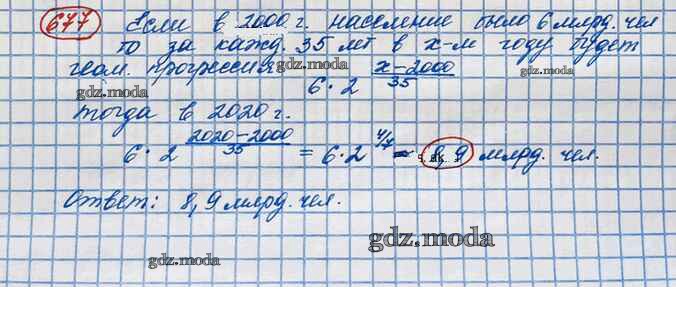 677 Если в 2000 г. население было 6 млрд. чел
то за кажд. 35 лет в x-м году будет
геом. прогрессия 6·2^(x-2000)/35
gdz.moda
gdz.moda
gdz.moda
тогда в 2020 г.
6·2^(2020-2000)/35 = 6·2^4/7 = 8,9 млрд. чел.
gdz.moda
Ответ: 8,9 млрд. чел.
gdz.moda
gdz.moda